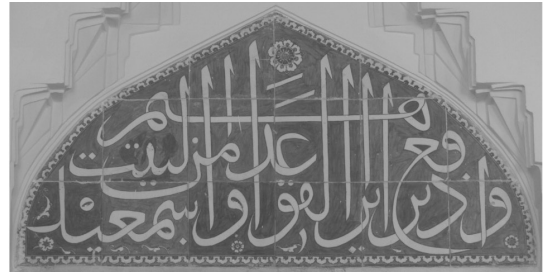 واذ يرفع ابراهيم القواعد من البيت واسمعيل